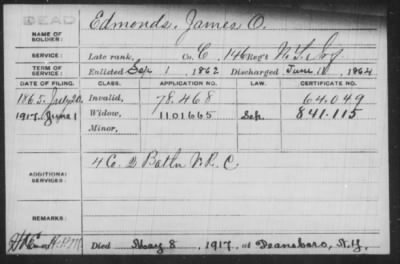 DEAD
NAME OF SOLDIER: Edmonds, James O.
SERVICE: Late rank, Co. C, 146 Reg't N.Y. Inf
TERM OF SERVICE: Enlisted Sep 1, 1862 Discharged June 18, 1864
DATE OF FILING. CLASS. APPLICATION NO. LAW. CERTIFICATE NO.
1865, July 20. Invalid, 78.468 64.049
1917, June 1 Widow, 1101665 Sep. 841.115
Minor,
ADDITIONAL SERVICES: 4 Co. 2 Batln V.R.C.
REMARKS:
Died May 8, 1917, at Deansboro, N.Y.